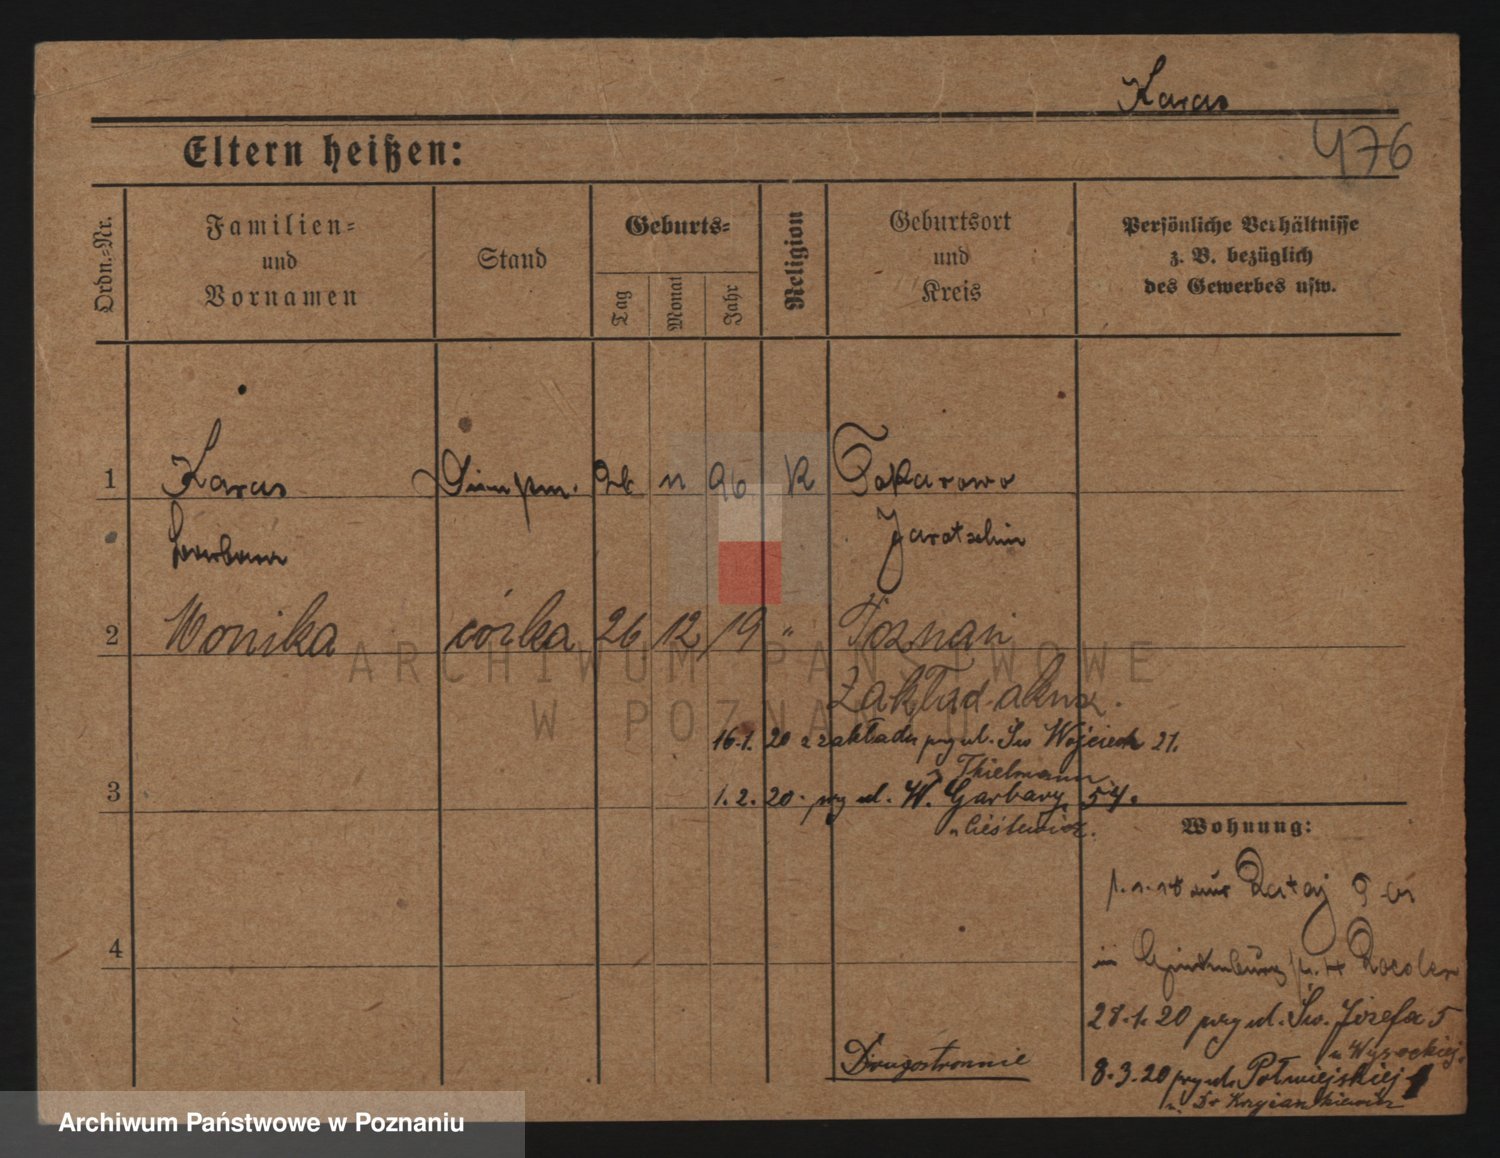 Karas
476
Eltern heißen:
Ordn.-Nr.
Familien-
und
Vornamen
Stand
Geburts-
Tag
Monat
Jahr
Religion
Geburtsort
und
Kreis
Persönliche Verhältnisse
z. B. bezüglich
des Gewerbes usw.
1 Karas 96 K Tokarowo
Jarotschin
2 Monika córka 26 12 19 " Poznań
Zakład akusz.
16.1.20 z zakładu przy ul. Św Wojciech 21.
Thielmann
3 1.2.20. przy ul. W. Garbary 54.
Wohnung:
Rataj
4
in
28.1.20 przy ul. Św. Józefa 5
u Wysockiej.
8.3.20 przy ul. Półwiejskiej 1
u Dr
Drugostronnie
ARCHIWUM PAŃSTWOWE
W POZNANIU
Archiwum Państwowe w Poznaniu